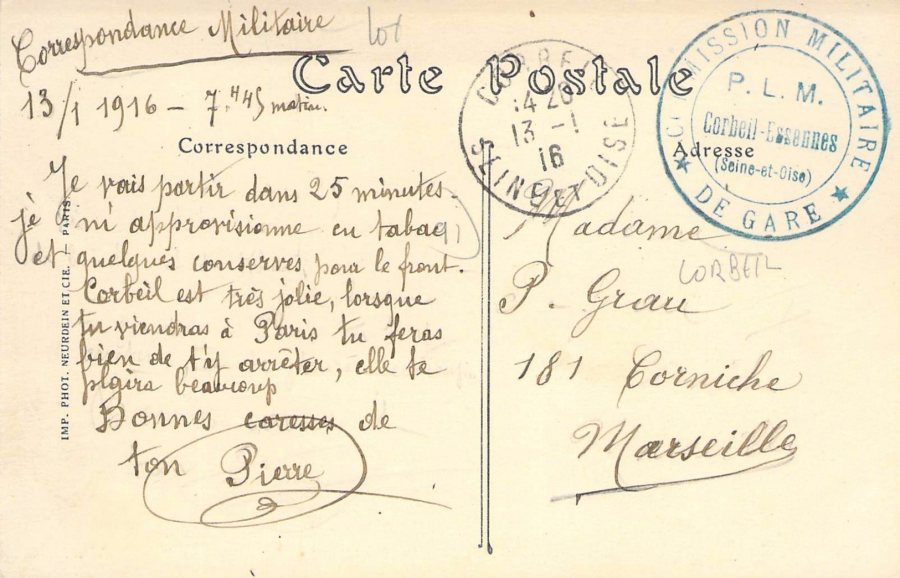 Correspondance Militaire
lot
Carte Postale
13/1 1916 – 7.H45 matin.
Correspondance
Je vais partir dans 25 minutes,
je m'approvisionne en tabac
et quelques conserves pour le front.
Corbeil est très jolie, lorsque
tu viendras à Paris tu feras
bien de t'y arrêter, elle te
plaira beaucoup
Bonnes caresses de
ton Pierre
IMP. PHOT. NEURDEIN ET CIE. — PARIS.
CORBEIL
14 20
13 -1
16
SEINE ET OISE
COMMISSION MILITAIRE
P. L. M.
Corbeil-Essonnes
(Seine-et-Oise)
★ DE GARE ★
Adresse
Madame
CORBEIL
P. Grau
181 Corniche
Marseille